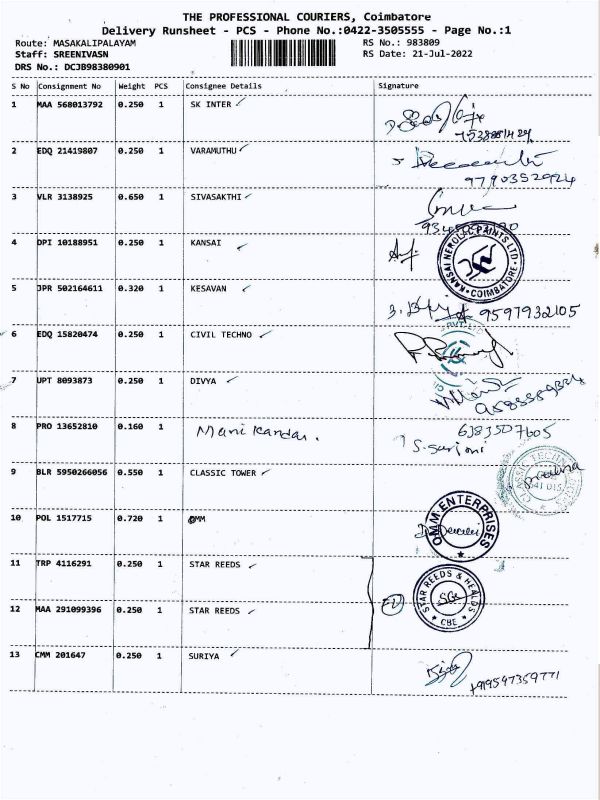 THE PROFESSIONAL COURIERS, Coimbatore
Delivery Runsheet - PCS - Phone No.:0422-3505555 - Page No.:1
Route: MASAKALIPALAYAM RS No.: 983809
Staff: SREENIVASN RS Date: 21-Jul-2022
DRS No.: DCJB98380901
S No Consignment No Weight PCS Consignee Details Signature
1 MAA 568013792 0.250 1 SK INTER ✓
2 EDQ 21419807 0.250 1 VARAMUTHU ✓
9790352924
3 VLR 3138925 0.650 1 SIVASAKTHI ✓
4 DPI 10188951 0.250 1 KANSAI ✓
KANSAI NEROLAC PAINTS LTD. COIMBATORE
5 JPR 502164611 0.320 1 KESAVAN ✓
9597932105
6 EDQ 15820474 0.250 1 CIVIL TECHNO ✓
7 UPT 8093873 0.250 1 DIVYA ✓
8 PRO 13652810 0.160 1 Mani Kandan. 6383507605
S. Surjoni
9 BLR 5950266056 0.550 1 CLASSIC TOWER ✓
10 POL 1517715 0.720 1 OMM
OMM ENTERPRISES
11 TRP 4116291 0.250 1 STAR REEDS ✓
STAR REEDS & HEALDS CBE
12 MAA 291099396 0.250 1 STAR REEDS ✓
13 CMM 201647 0.250 1 SURIYA ✓
+919597359771